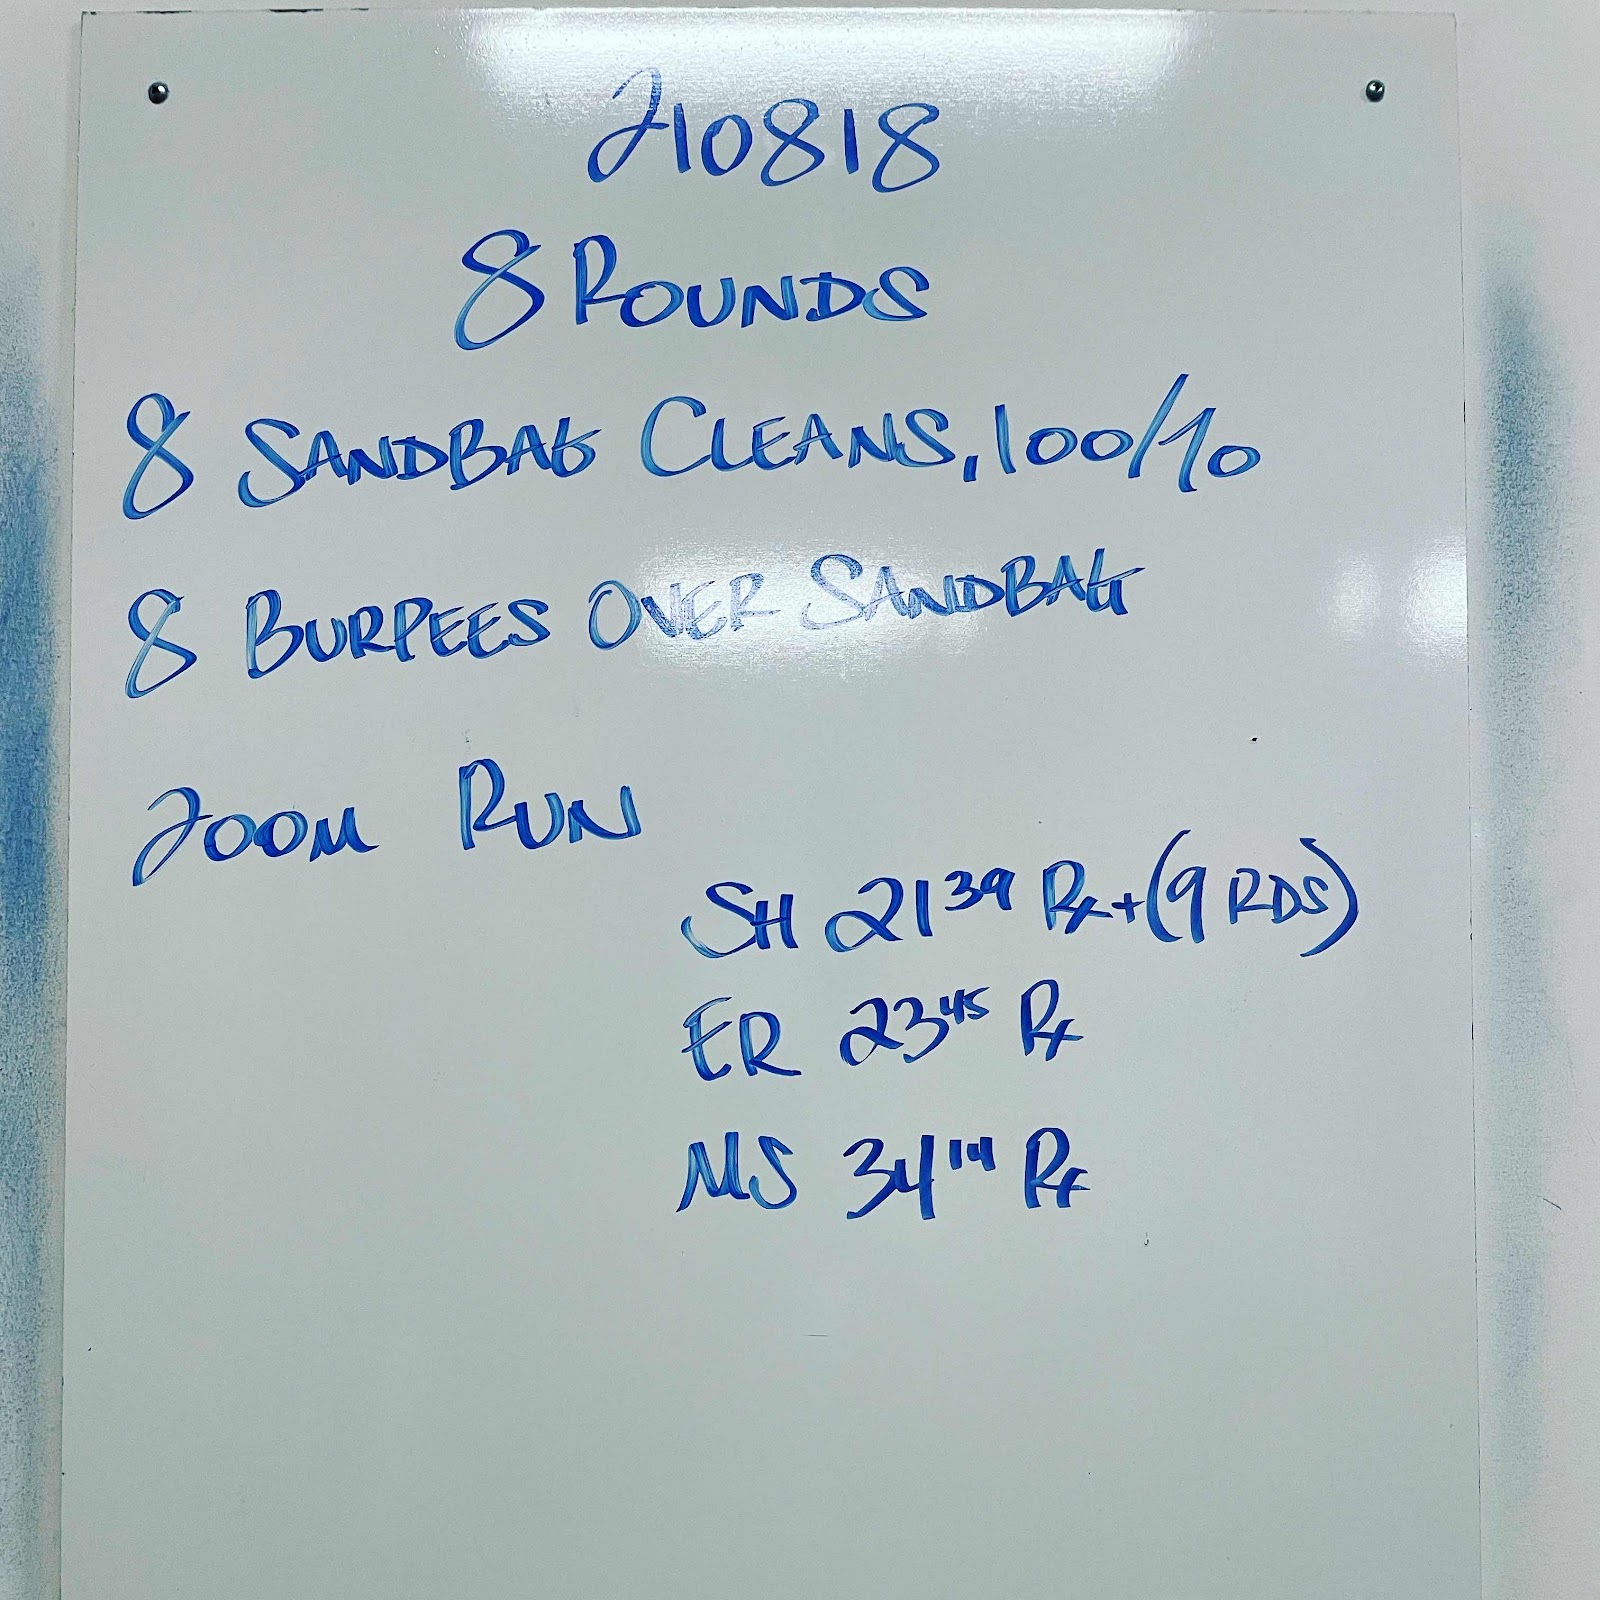 210818
8 ROUNDS
8 SANDBAG CLEANS, 100/70
8 BURPEES OVER SANDBAG
200M RUN
SH 21 39 Rx+ (9 RDS)
ER 23 45 Rx
MS 34 14 Rx